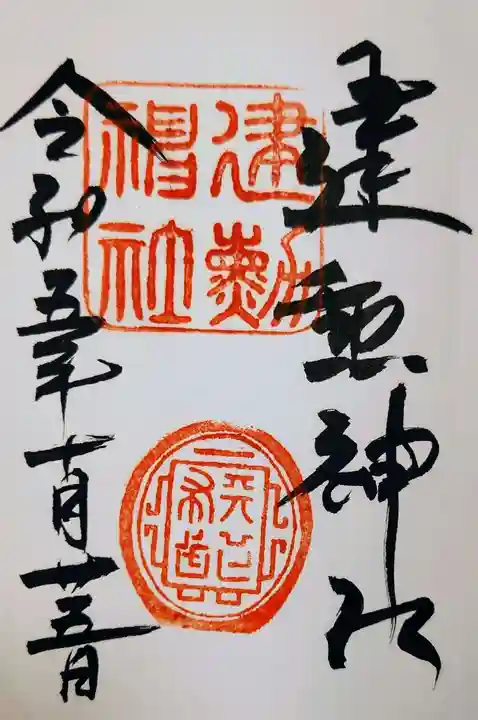 建勲神社
建勲
神社
令和五年十月廿五日